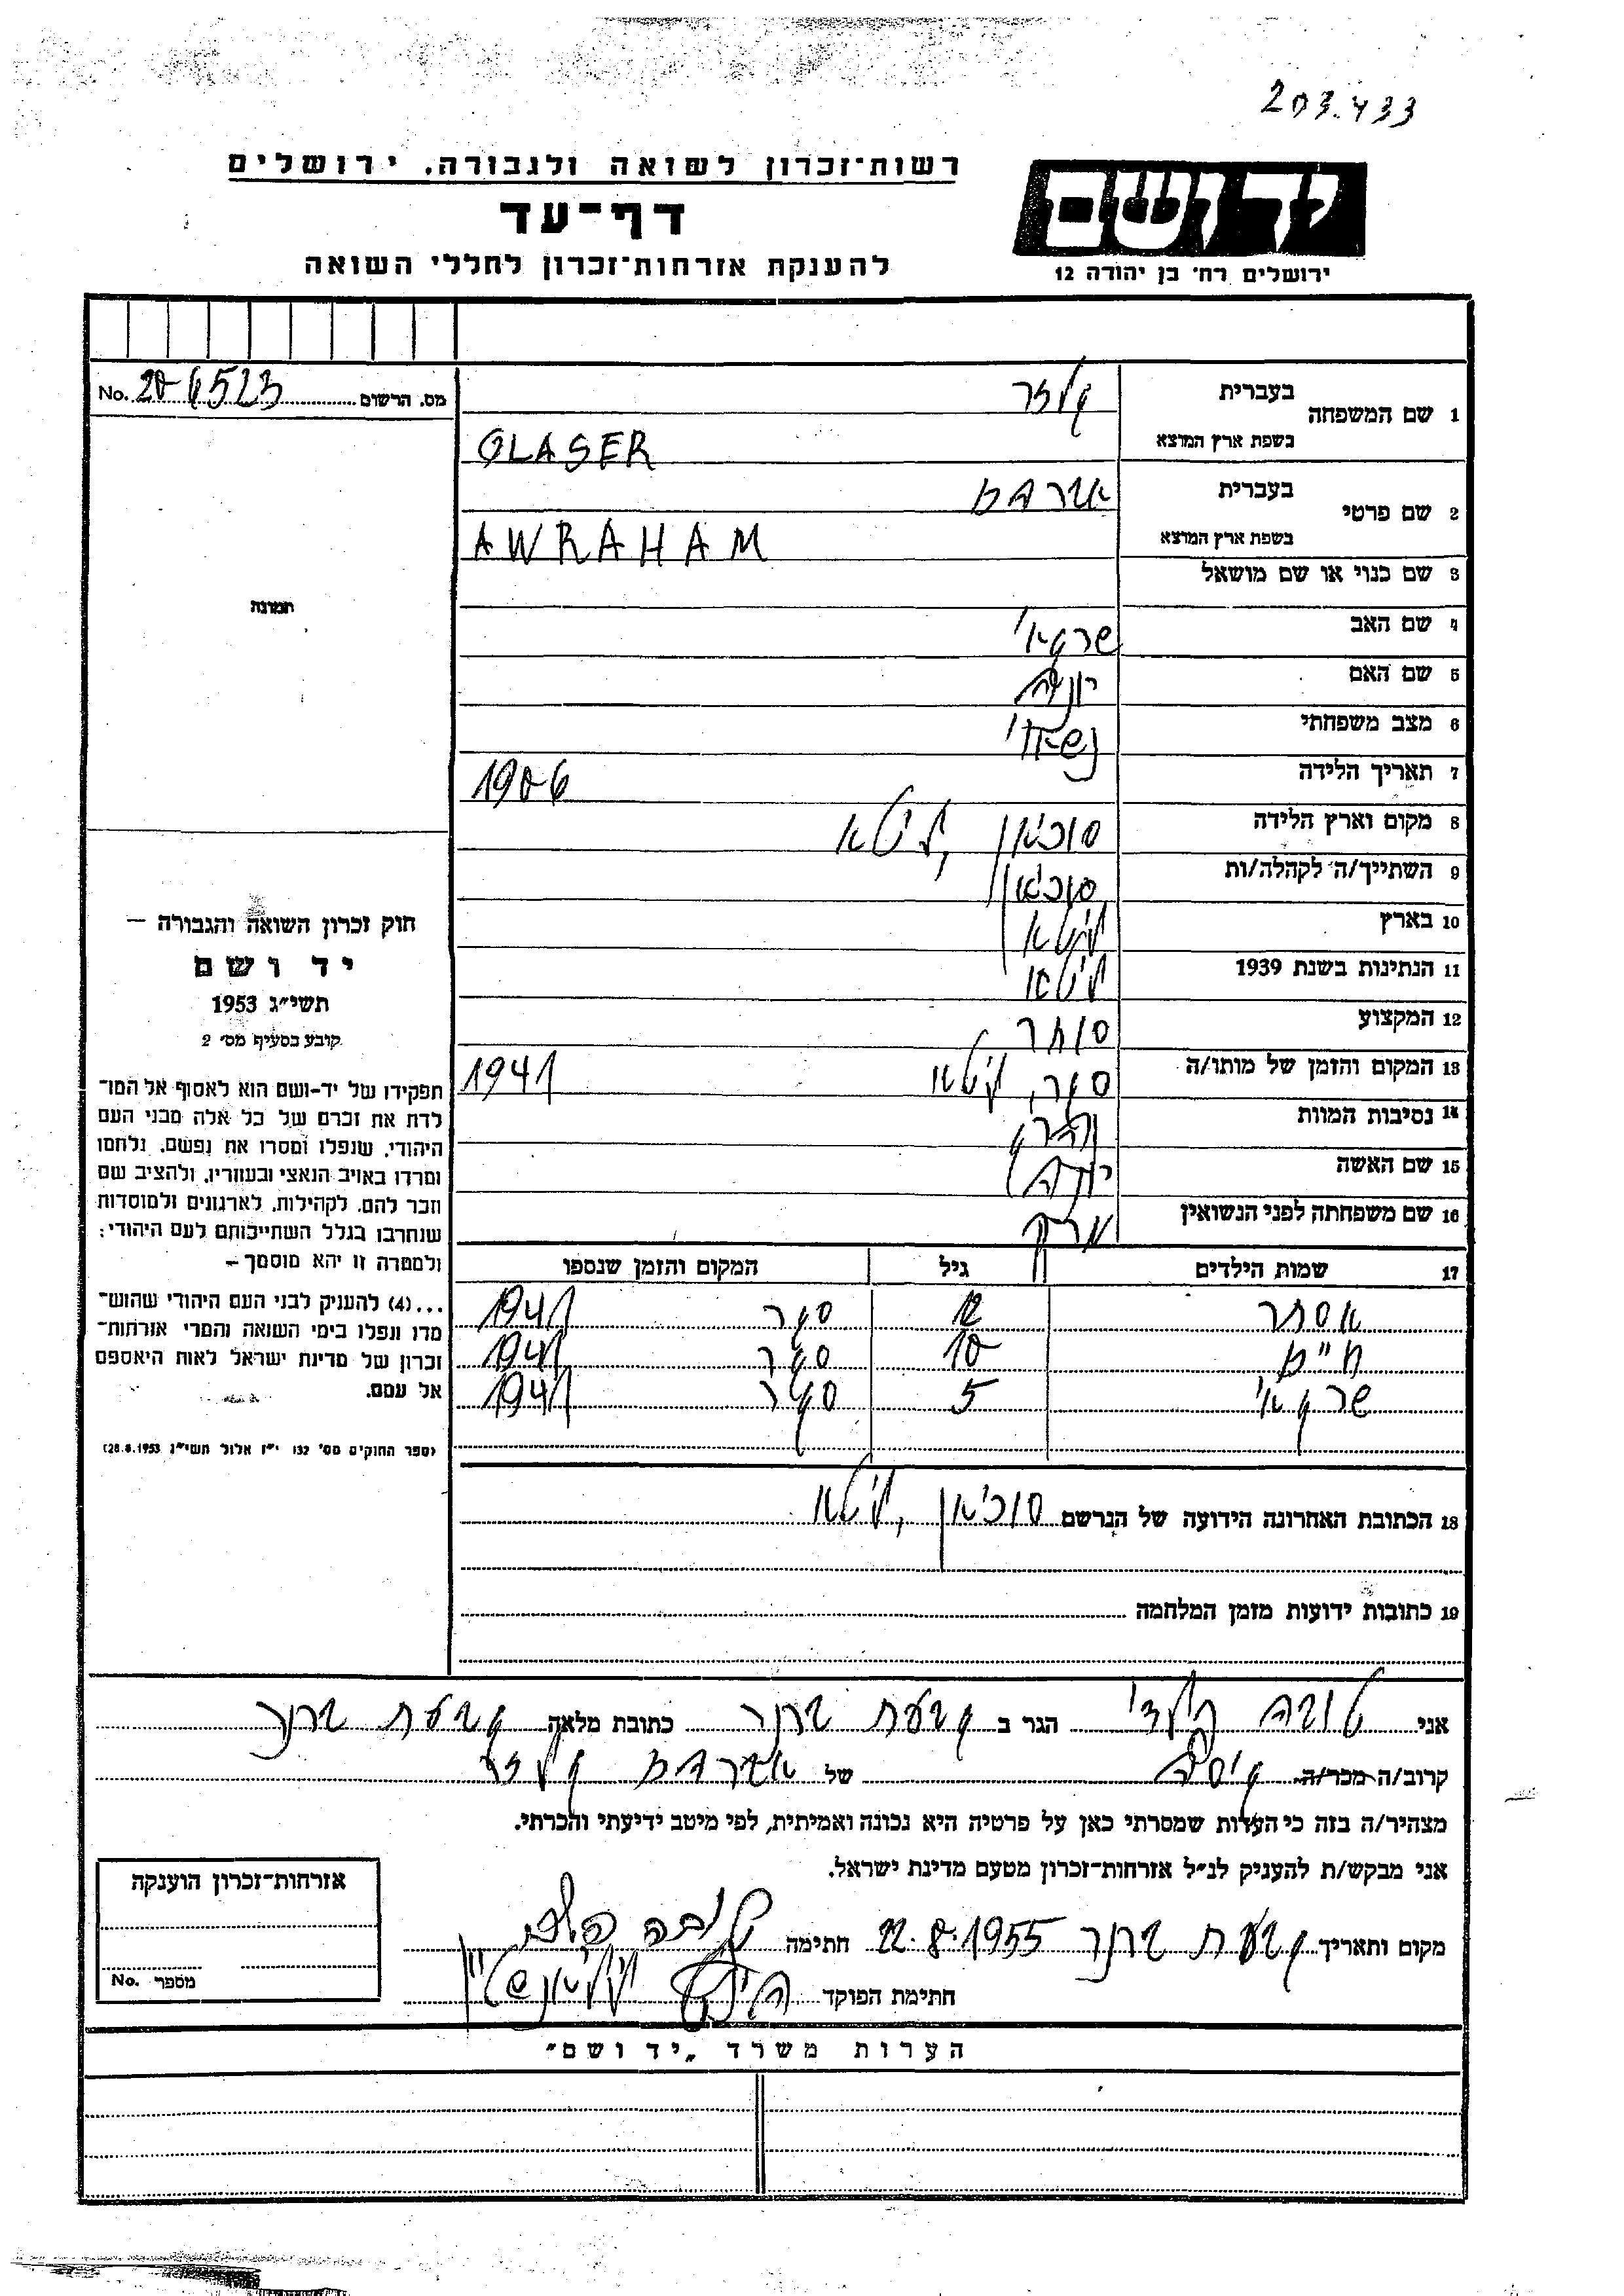 203.433
רשות־זכרון לשואה ולגבורה, ירושלים
ידושם
דף־עד
ירושלים רח' בן יהודה 12
להענקת אזרחות־זכרון לחללי השואה
מס. הרשום 206523 No.
1 שם המשפחה בעברית גלזר
בשפת ארץ המוצא GLASER
2 שם פרטי בעברית אברהם
בשפת ארץ המוצא AWRAHAM
3 שם כנוי או שם מושאל
תמונה
4 שם האב שרגאי
5 שם האם
6 מצב משפחתי נשאוי
7 תאריך הלידה 1906
8 מקום וארץ הלידה סוכיאן, ליטא
9 השתייך/ה לקהלה/ות סוכיאן
10 בארץ ליטא
11 הנתינות בשנת 1939 ליטאי
12 המקצוע סוחר
13 המקום והזמן של מותו/ה ליטא 1941
14 נסיבות המוות נהרג
15 שם האשה
16 שם משפחתה לפני הנשואין
17 שמות הילדים גיל המקום והזמן שנספו
אסתר 12 1941
חיים 10 1941
שרגאי 5 1941
18 הכתובת האחרונה הידועה של הנרשם סוכיאן, ליטא
19 כתובות ידועות מזמן המלחמה
חוק זכרון השואה והגבורה —
יד ושם
תשי״ג 1953
קובע בסעיף מס׳ 2
תפקידו של יד-ושם הוא לאסוף אל המו־
לדת את זכרם של כל אלה מבני העם
היהודי, שנפלו ומסרו את נפשם, נלחמו
ומרדו באויב הנאצי ובעוזריו, ולהציב שם
וזכר להם, לקהילות, לארגונים ולמוסדות
שנחרבו בגלל השתייכותם לעם היהודי;
ולמטרה זו יהא מוסמך —
...(4) להעניק לבני העם היהודי שהוש־
מדו ונפלו בימי השואה והמרי אזרחות־
זכרון של מדינת ישראל לאות היאספם
אל עמם.
(ספר החוקים מס׳ 132 י״ז אלול תשי״ג 28.8.1953)
אני טובה הגר ב גבעת ברנר כתובת מלאה גבעת ברנר
קרוב/ה מכר/ה גיסה של אברהם גלזר
מצהיר/ה בזה כי העדות שמסרתי כאן על פרטיה היא נכונה ואמיתית, לפי מיטב ידיעתי והכרתי.
אני מבקש/ת להעניק לנ״ל אזרחות-זכרון מטעם מדינת ישראל.
מקום ותאריך גבעת ברנר 22.8.1955 חתימה טובה
חתימת הפוקד
אזרחות-זכרון הוענקה
מספר No.
הערות משרד „יד ושם״